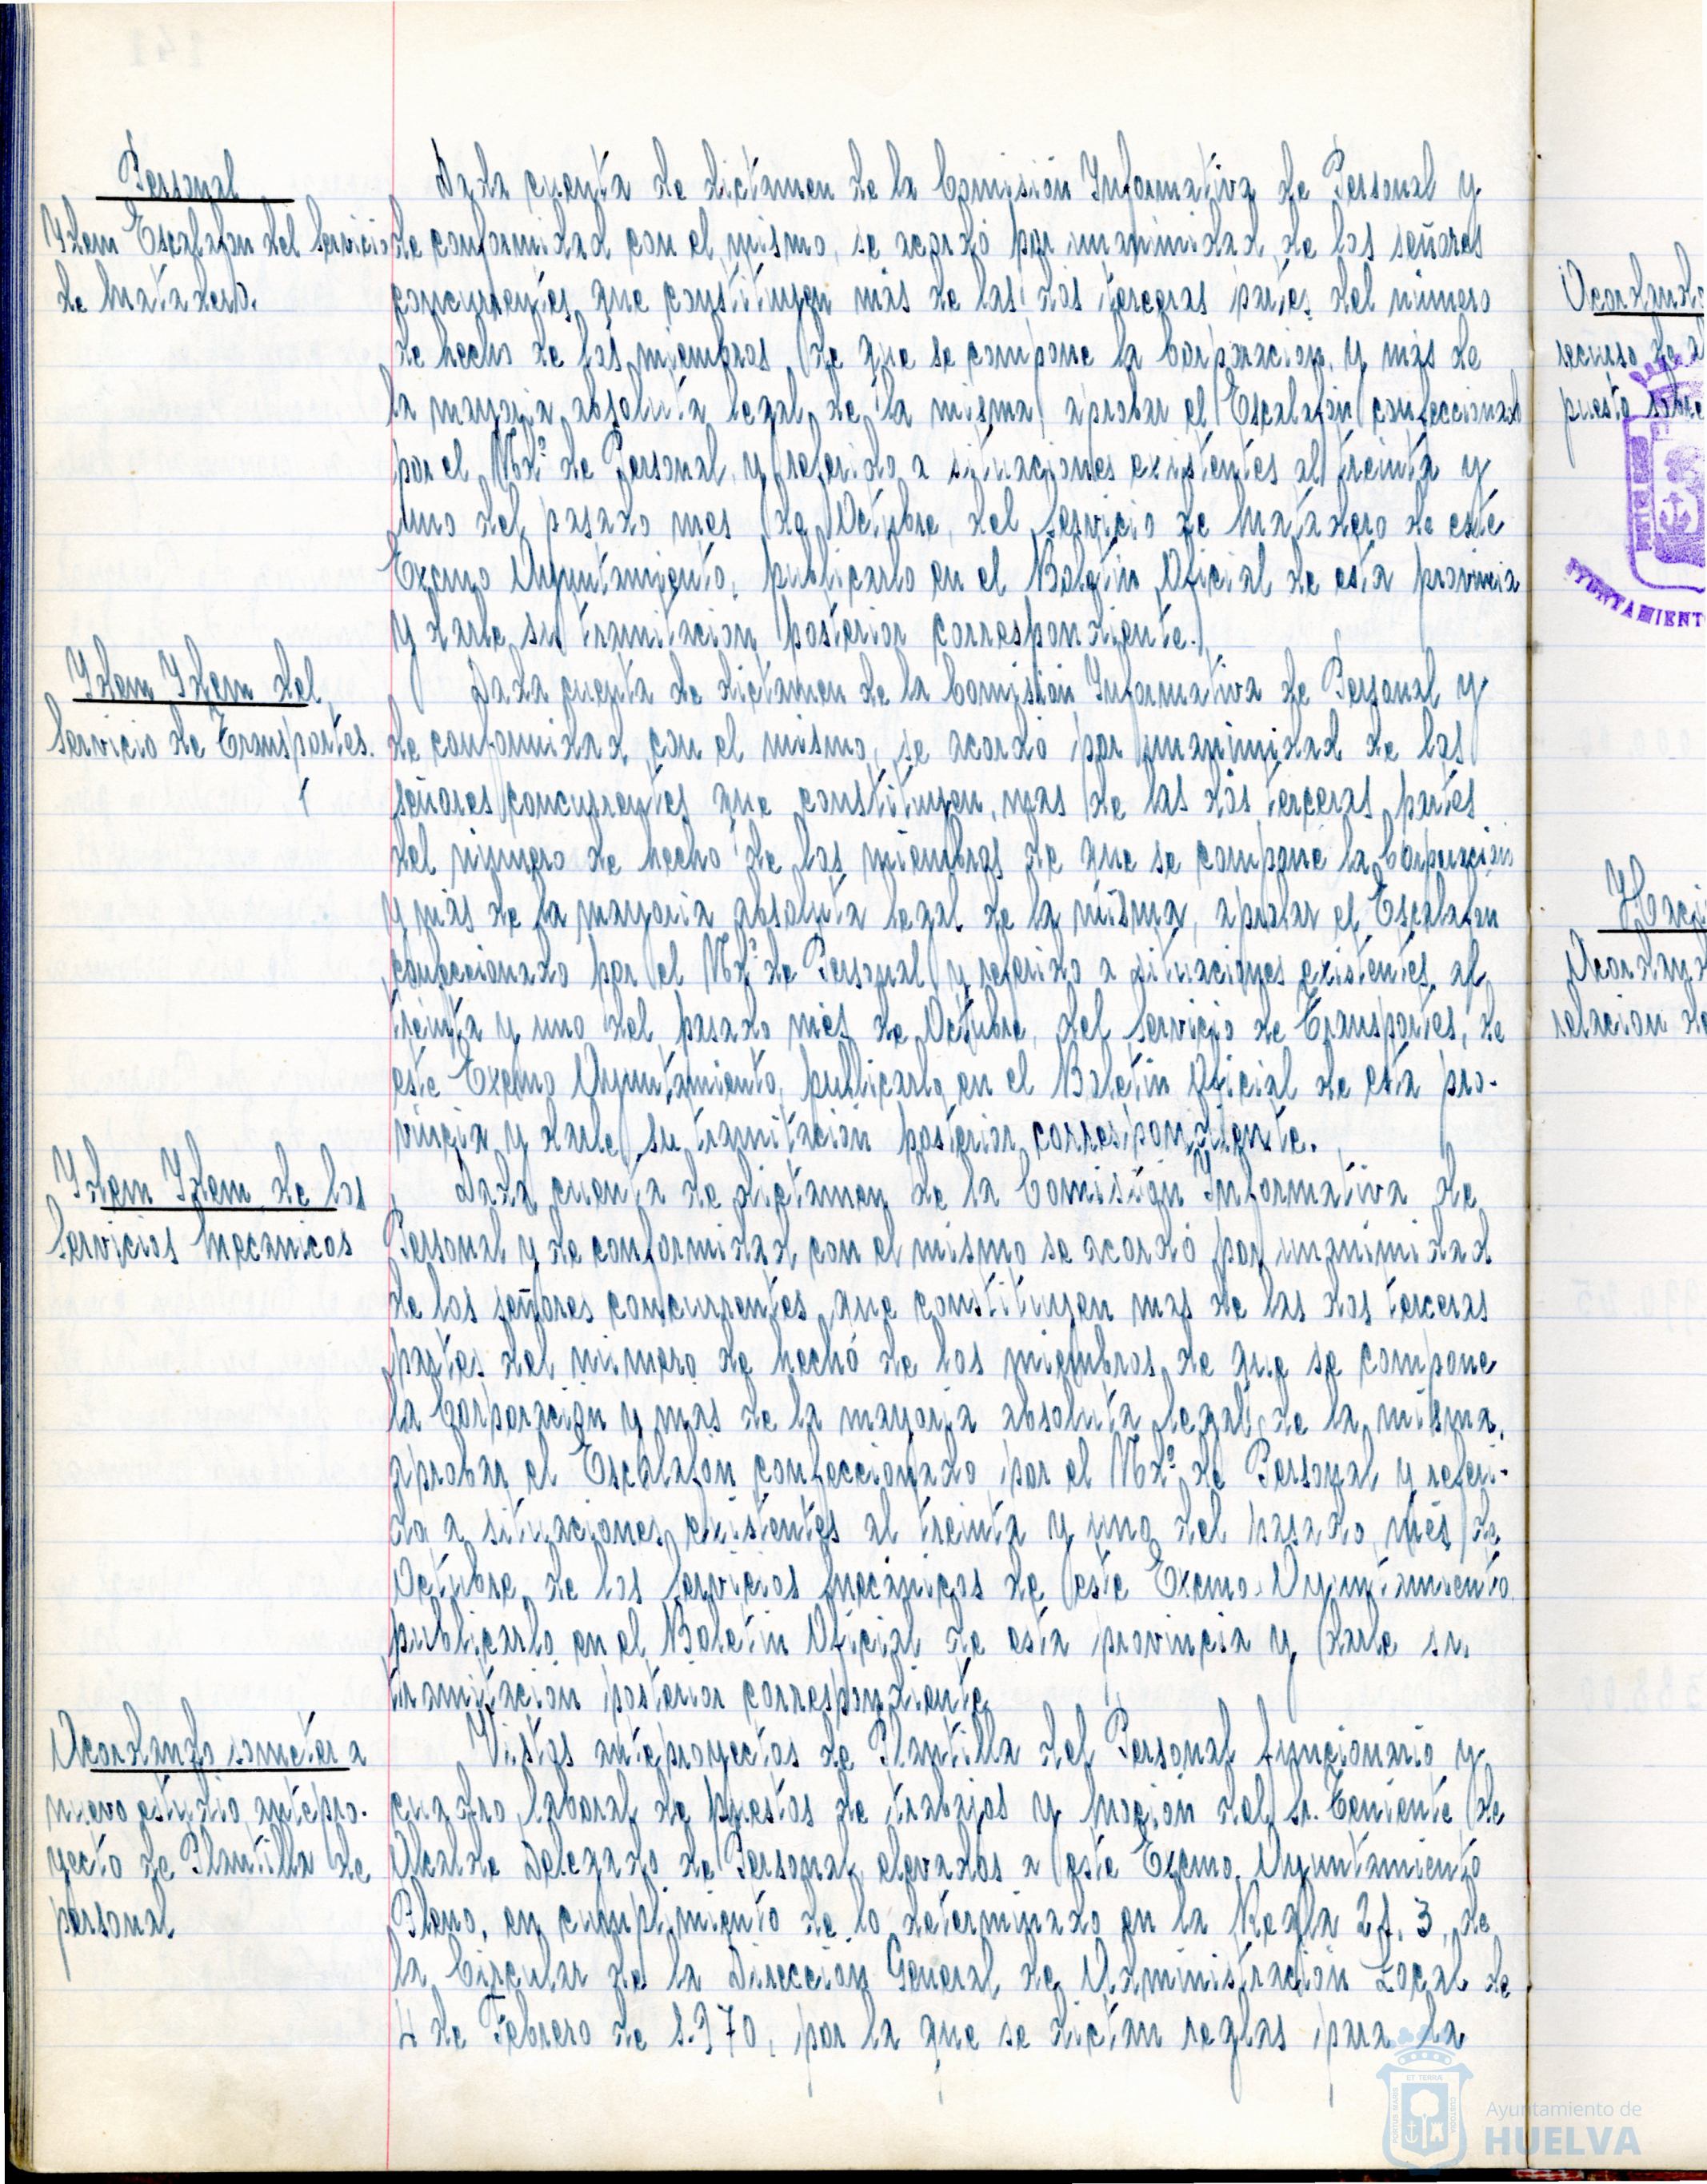 Personal
Idem Escalafon del Servicio
de Matadero.
Dada cuenta de dictamen de la Comisión Informativa de Personal y
de conformidad con el mismo, se acordó por unanimidad de los señores
concurrentes que constituyen más de las dos terceras partes del número
de hecho de los miembros de que se compone la Corporación, y más de
la mayoria absoluta legal de la misma, aprobar el Escalafón confeccionado
por el Ndº de Personal y referido a situaciones existentes al treinta y
uno del pasado mes de Octubre, del Servicio de Matadero de este
Excmo Ayuntamiento, publicarlo en el Boletín Oficial de esta provincia
y darle su tramitación posterior correspondiente.
Idem Idem del
Servicio de Transportes.
Dada cuenta de dictamen de la Comisión Informativa de Personal y
de conformidad con el mismo, se acordó por unanimidad de los
señores concurrentes que constituyen mas de las dos terceras partes
del número de hecho de los miembros de que se compone la Corporación
y más de la mayoria absoluta legal de la misma, aprobar el Escalafon
confeccionado por el Ndº de Personal y referido a situaciones existentes al
treinta y uno del pasado mes de Octubre, del Servicio de Transportes, de
este Excmo Ayuntamiento, publicarlo en el Boletín Oficial de esta pro-
vincia y darle su tramitación posterior correspondiente.
Idem Idem de los
Servicios Mecanicos
Dada cuenta de dictamen de la Comisión Informativa de
Personal y de conformidad con el mismo se acordó por unanimidad
de los señores concurrentes que constituyen mas de las dos terceras
partes del número de hecho de los miembros de que se compone
la Corporación y mas de la mayoria absoluta legal de la misma,
aprobar el Escalafon confeccionado por el Ndº de Personal y referi-
do a situaciones existentes al treinta y uno del pasado mes de
Octubre de los Servicios Mecánicos de este Excmo Ayuntamiento
publicarlo en el Boletín Oficial de esta provincia y darle su
tramitación posterior correspondiente
Acordando someter a
nuevo estudio antepro-
yecto de Plantilla de
personal
Vistos anteproyectos de Plantilla del Personal funcionario y
cuadro laboral de puestos de trabajos y Moción del Sr. Teniente de
Alcalde Delegado de Personal, elevados a este Excmo. Ayuntamiento
Pleno, en cumplimiento de lo determinado en la Regla 2ª. 3, de
la Circular de la Dirección General de Administración Local de
4 de Febrero de 1.970, por la que se dictan reglas para la
Acordando
recurso de
puesto sobre
AYUNTAMIENT
Acordand
relacion de
Ayuntamiento de
HUELVA